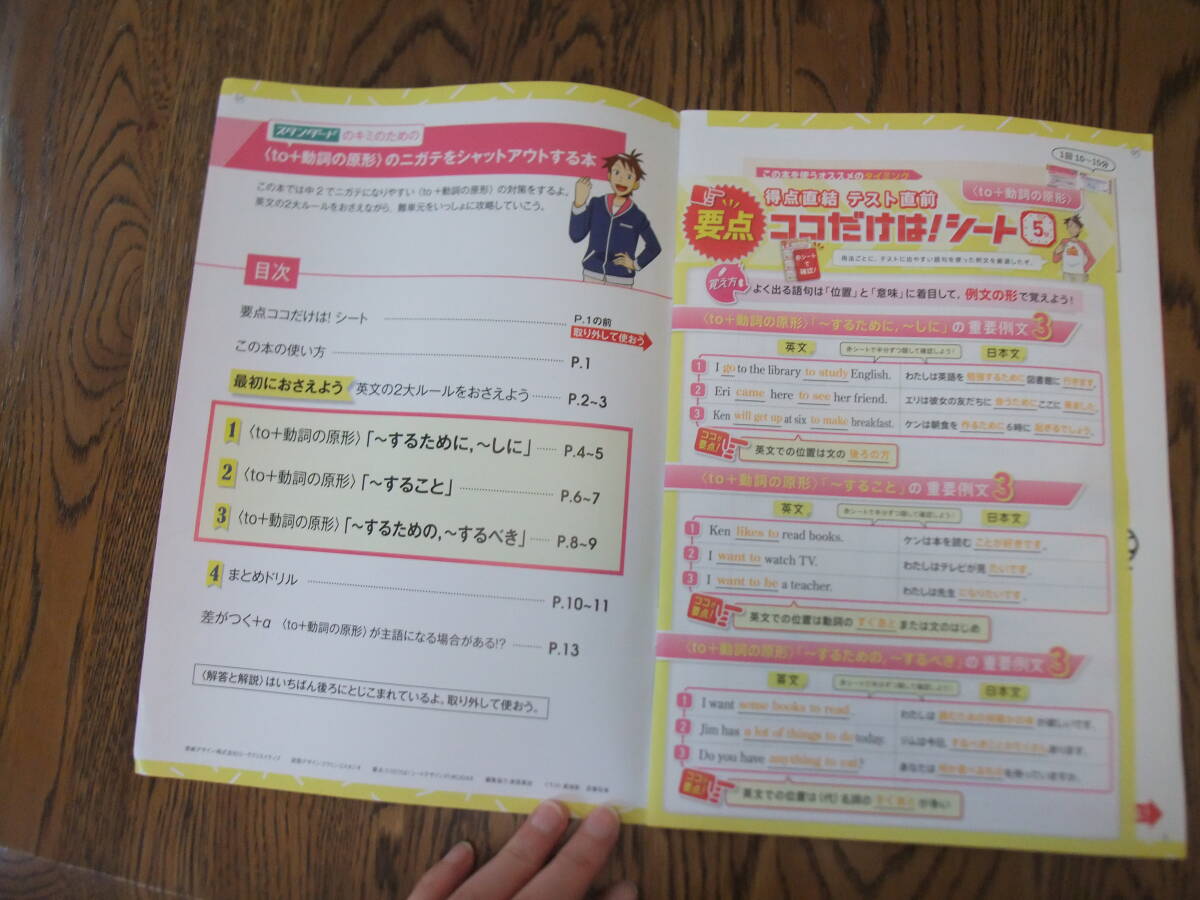 スタンダード のキミのための
〈to+動詞の原形〉のニガテをシャットアウトする本
この本では中2でニガテになりやすい〈to+動詞の原形〉の対策をするよ。
英文の2大ルールをおさえながら、難単元をいっしょに攻略していこう。
目次
要点ココだけは! シート P.1の前
取り外して使おう
この本の使い方 P.1
最初におさえよう 英文の2大ルールをおさえよう P.2~3
1 〈to+動詞の原形〉「~するために,~しに」 P.4~5
2 〈to+動詞の原形〉「~すること」 P.6~7
3 〈to+動詞の原形〉「~するための,~するべき」 P.8~9
4 まとめドリル P.10~11
差がつく+α 〈to+動詞の原形〉が主語になる場合がある!? P.13
〈解答と解説〉はいちばん後ろにとじこまれているよ。取り外して使おう。
1回 10~15分
この本を使うオススメのタイミング
得点直結 テスト直前
〈to+動詞の原形〉
要点 ココだけは!シート 5分
赤シートで確認!
用法ごとに、テストに出やすい語句を使った例文を厳選したぞ。
覚え方 よく出る語句は「位置」と「意味」に着目して,例文の形で覚えよう!
〈to+動詞の原形〉「~するために,~しに」の重要例文3
英文 赤シートで半分ずつ隠して確認しよう! 日本文
1 I go to the library to study English. わたしは英語を 勉強するために 図書館に 行きます。
2 Eri came here to see her friend. エリは彼女の友だちに 会うために ここに 来ました。
3 Ken will get up at six to make breakfast. ケンは朝食を 作るために 6時に 起きるでしょう。
ココが要点! 英文での位置は文の 後ろの方
〈to+動詞の原形〉「~すること」の重要例文3
英文 赤シートで半分ずつ隠して確認しよう! 日本文
1 Ken likes to read books. ケンは本を読む ことが好きです。
2 I want to watch TV. わたしはテレビが見 たいです。
3 I want to be a teacher. わたしは先生 になりたいです。
ココが要点! 英文での位置は動詞の すぐあと または文のはじめ
〈to+動詞の原形〉「~するための,~するべき」の重要例文3
英文 赤シートで半分ずつ隠して確認しよう! 日本文
1 I want some books to read. わたしは 読むための何冊かの本 が欲しいです。
2 Jim has a lot of things to do today. ジムは今日, するべきことがたくさん あります。
3 Do you have anything to eat? あなたは 何か食べるもの を持っていますか。
ココが要点! 英文での位置は(代)名詞の すぐあと が多い